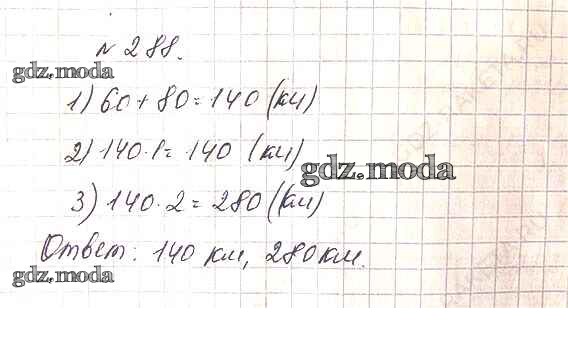 № 288.
gdz.moda
1) 60 + 80 = 140 (км)
2) 140 · 1 = 140 (км)
gdz.moda
3) 140 · 2 = 280 (км)
Ответ: 140 км, 280 км.
gdz.moda